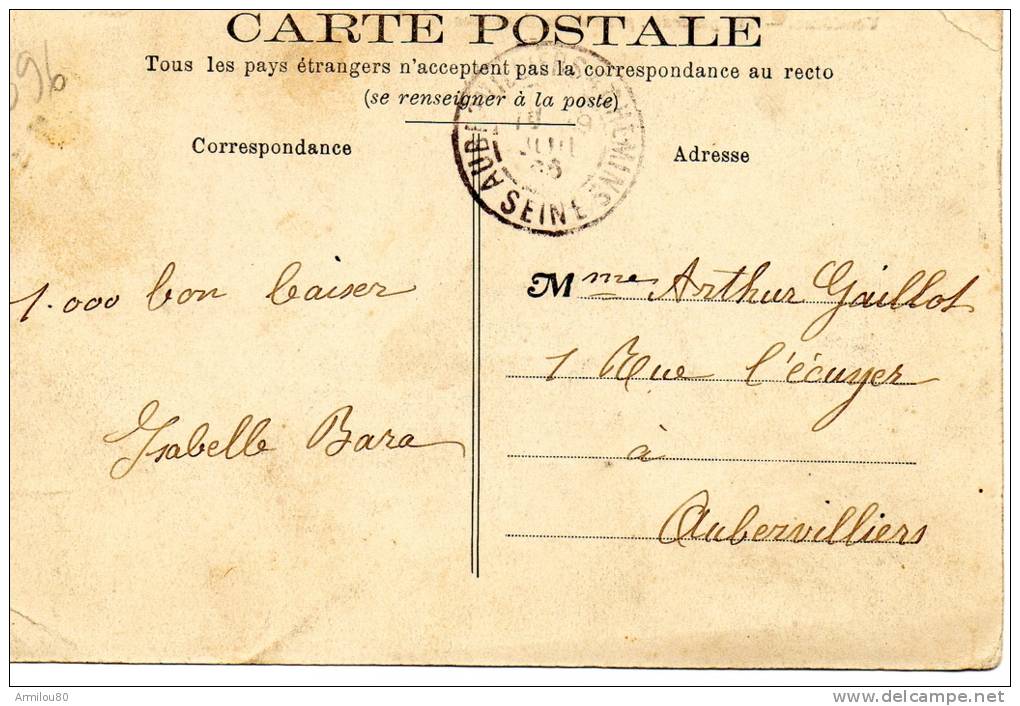 CARTE POSTALE
Tous les pays étrangers n'acceptent pas la correspondance au recto
(se renseigner à la poste)
Correspondance
Adresse
SEINE
1.000 bon baiser
Isabelle Bara
Mme Arthur Gaillot
1 Rue l'écuyer
à
Aubervilliers
96
Armilou80
www.delcampe.net